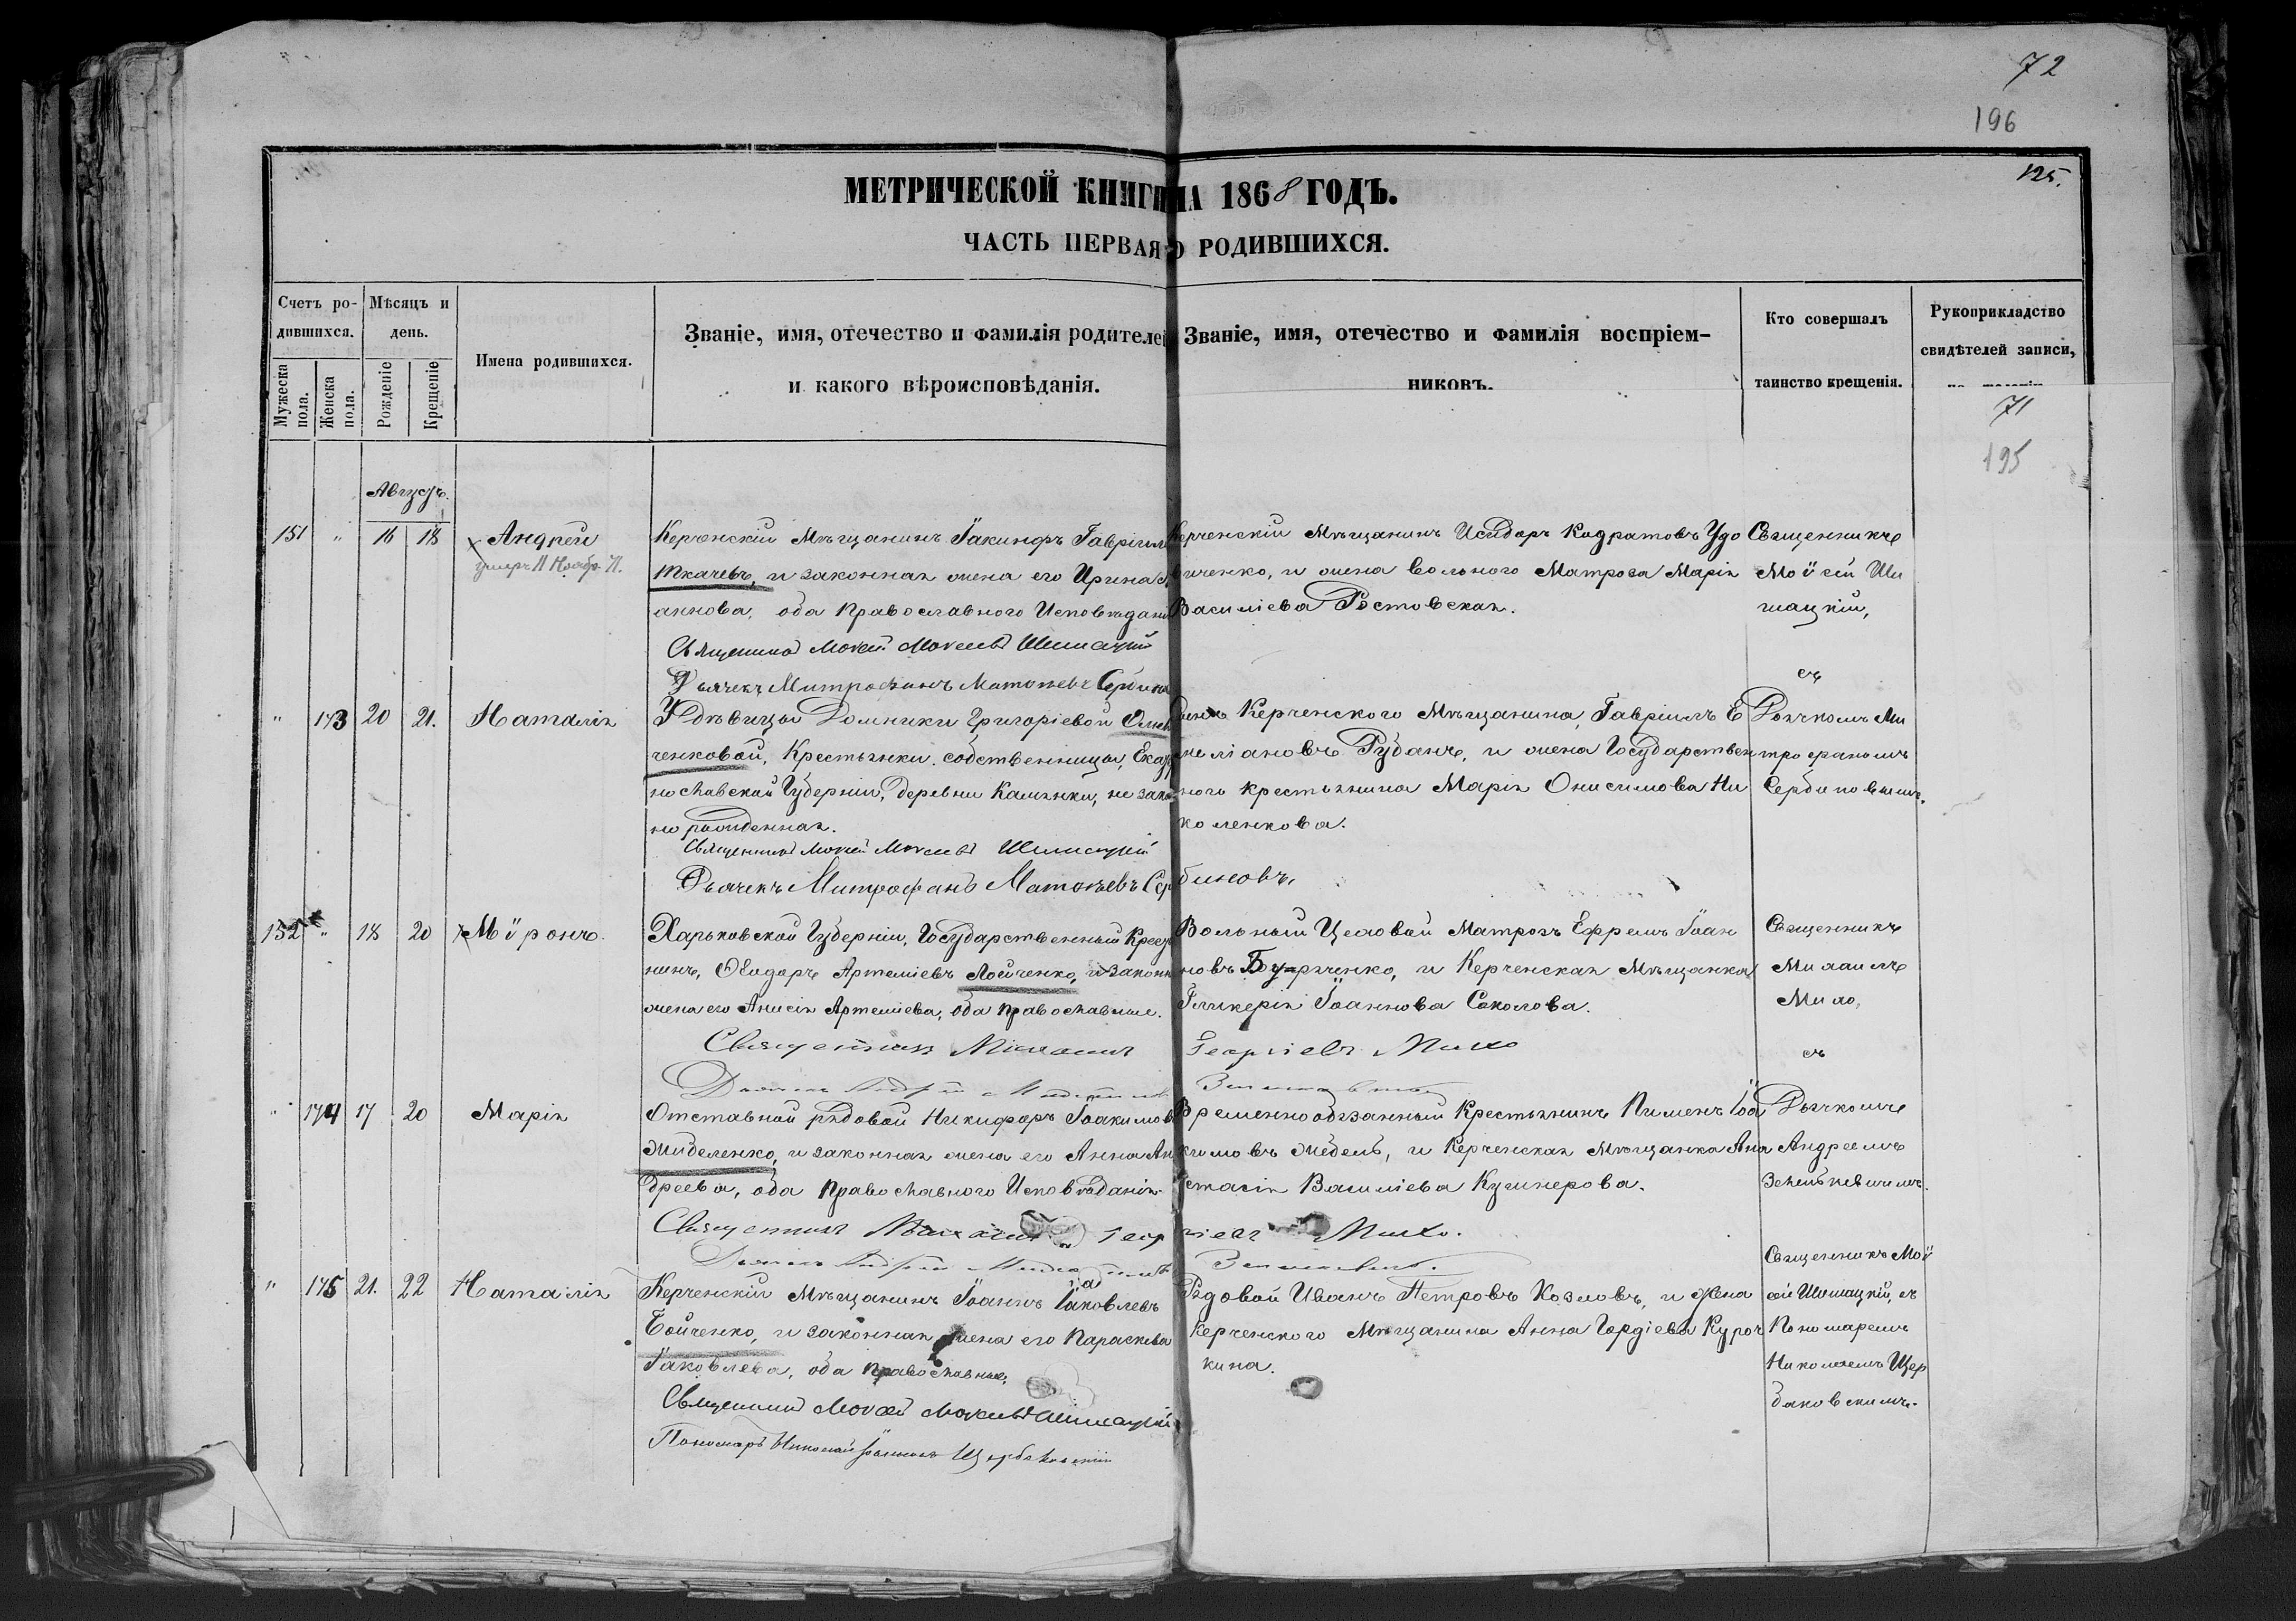 72
196
125.
МЕТРИЧЕСКОЙ КНИГИ НА 1868 ГОДЪ.
ЧАСТЬ ПЕРВАЯ О РОДИВШИХСЯ.
Счетъ ро-
дившихся.
Мужеска пола.
Женска пола.
Мѣсяцъ и
день.
Рожденіе
Крещеніе
Имена родившихся.
Званіе, имя, отечество и фамилія родителей
и какого вѣроисповѣданія.
Званіе, имя, отечество и фамилія воспріем-
никовъ.
Кто совершалъ
таинство крещенія.
Рукоприкладство
свидѣтелей записи,
71
195
Августъ.
151 " 16 18 Андрей
умеръ 11 Ноябр. 71.
Керченскій Мѣщанинъ Іакинфъ Гавріил
Ткачевъ, и законная жена его Ирина
аннова, оба Православнаго Исповѣдані
Священникъ Мокей Мокеевъ Шимацкій
Дьячекъ Митрофанъ Матѳѣевъ Сербино
Керченскій Мѣщанинъ Исидоръ Кодратовъ Удо
виченко, и жена вольнаго Матроза Марія
Василіева Ростовская.
Священникъ
Моѵсей Ши
мацкій,
съ
" 173 20 21. Наталія
У Дѣвицы Домники Григоріевой
ченковой, Крестьянки собственницы, Екатер
нославской Губерніи, деревни Камянки, не зако
но рожденная.
Священникъ Мокей Мокеевъ Шимацкій
Дьячекъ Митрофанъ Матѳѣевъ Сербиновъ,
Сынъ Керченскаго Мѣщанина, Гавріилъ Е
меліановъ Рубанъ, и жена Государствен
наго крестьянина Марія Онисимова Ни
коленкова.
Дьячкомъ Ми
трофаномъ
Сербиновымъ.
152 " 18 20 Мѵронъ.
Харьковской Губерніи, Государственный Крестья
нинъ, Ѳеодоръ Артеміевъ Лойченко, и законн
жена его Анисія Артеміева, оба православные.
Священникъ Михаилъ Георгіевъ Михо
Вольный Цеховой Матрозъ Ефремъ Іоан
новъ Бурряченко, и Керченская Мѣщанка
Гликерія Іоаннова Соколова.
Священникъ
Михаилъ
Михо,
съ
" 174 17 20 Марія
Отставной рядовой Никифоръ Іоакимов
Жиделенко, и законная жена его Анна Ан
дреева, оба Православнаго Исповѣданія.
Священникъ Михаилъ Георгіевъ Михо.
Временнообязанный Крестьянинъ Пименъ Іоа
кимовъ Жидель, и Керченская Мѣщанка Ана
стасія Василіева Кушнерова.
Дьячкомъ
Андреемъ
Зенькевичемъ.
" 175 21. 22 Наталія
Керченскій Мѣщанинъ Іоаннъ Іаковлевъ
Бойченко, и законная жена его Параскева
Іаковлева, оба православные,
Священникъ Мокей Мокеевъ Шимацкій
Пономарь Николай Щербаковскій
Рядовой Иванъ Петровъ Козловъ, и жена
Керченскаго Мѣщанина Анна Гордіева Куроч
кина.
Священникъ Моѵ
сей Шимацкій, съ
Пономаремъ
Николаемъ Щер
баковскимъ.